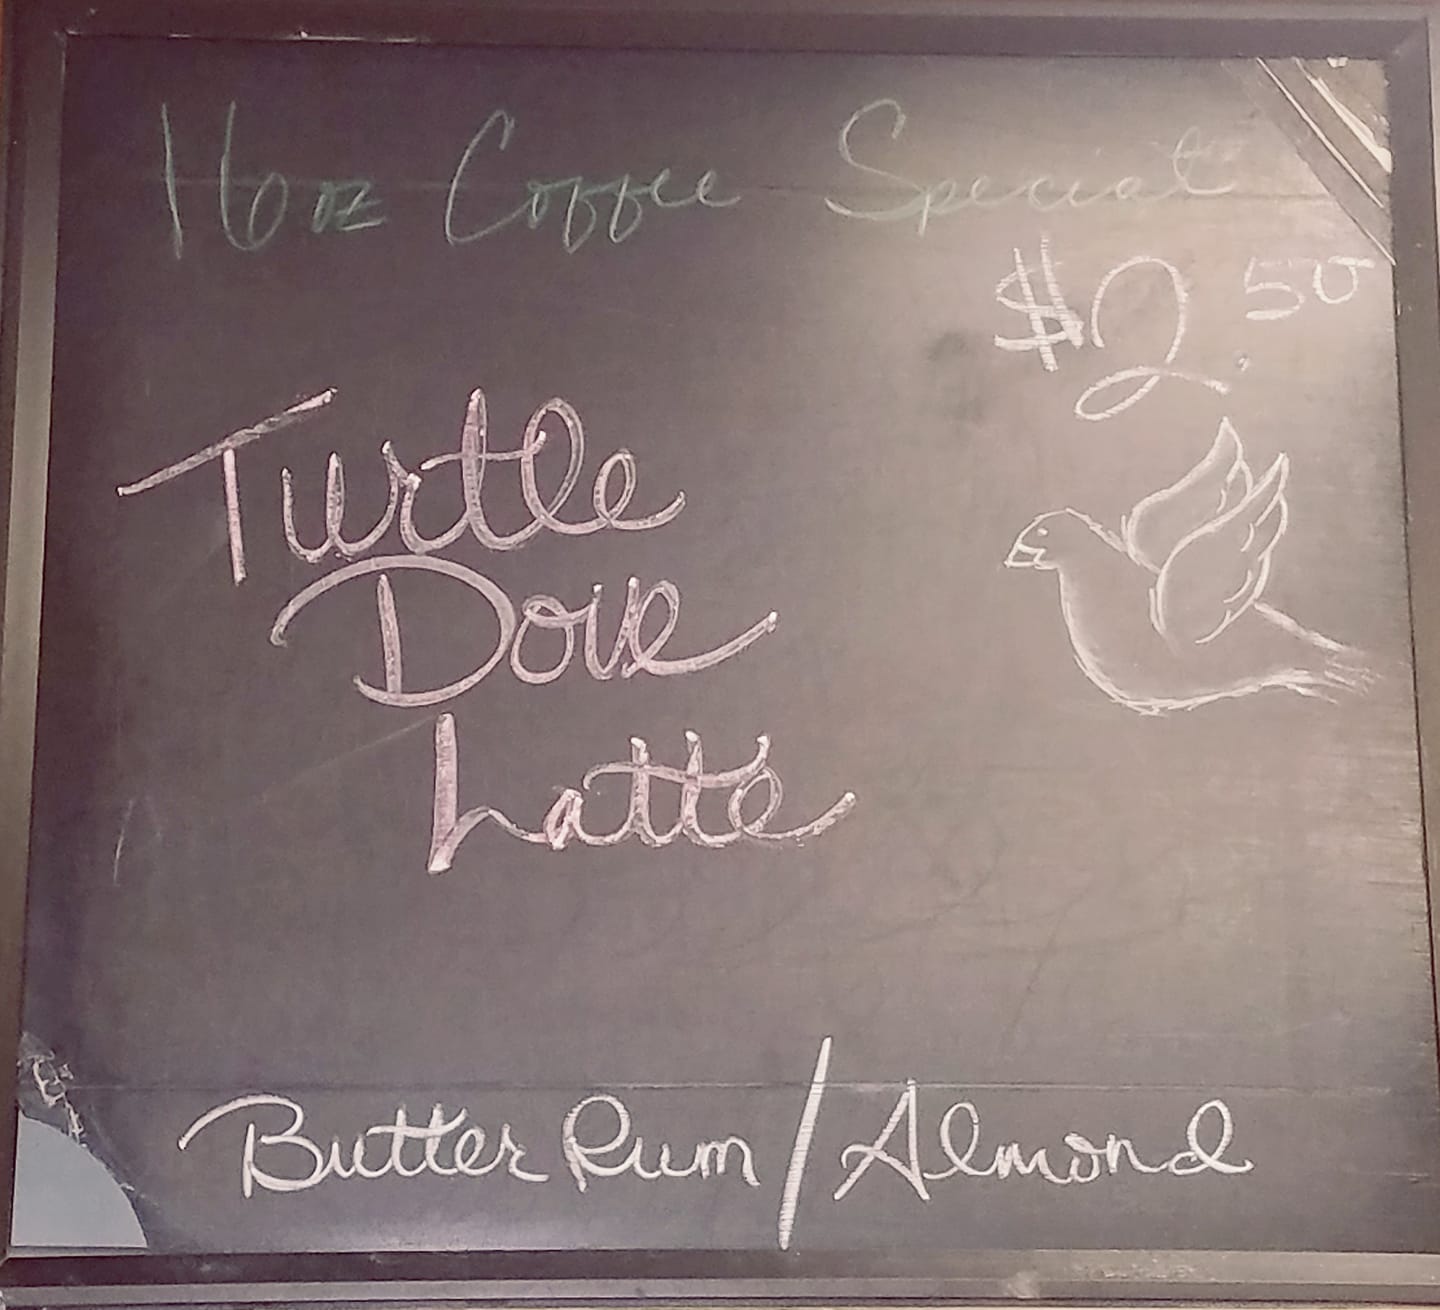 16oz Coffee Special
$2.50
Turtle
Dove
Latte
Butter Rum / Almond